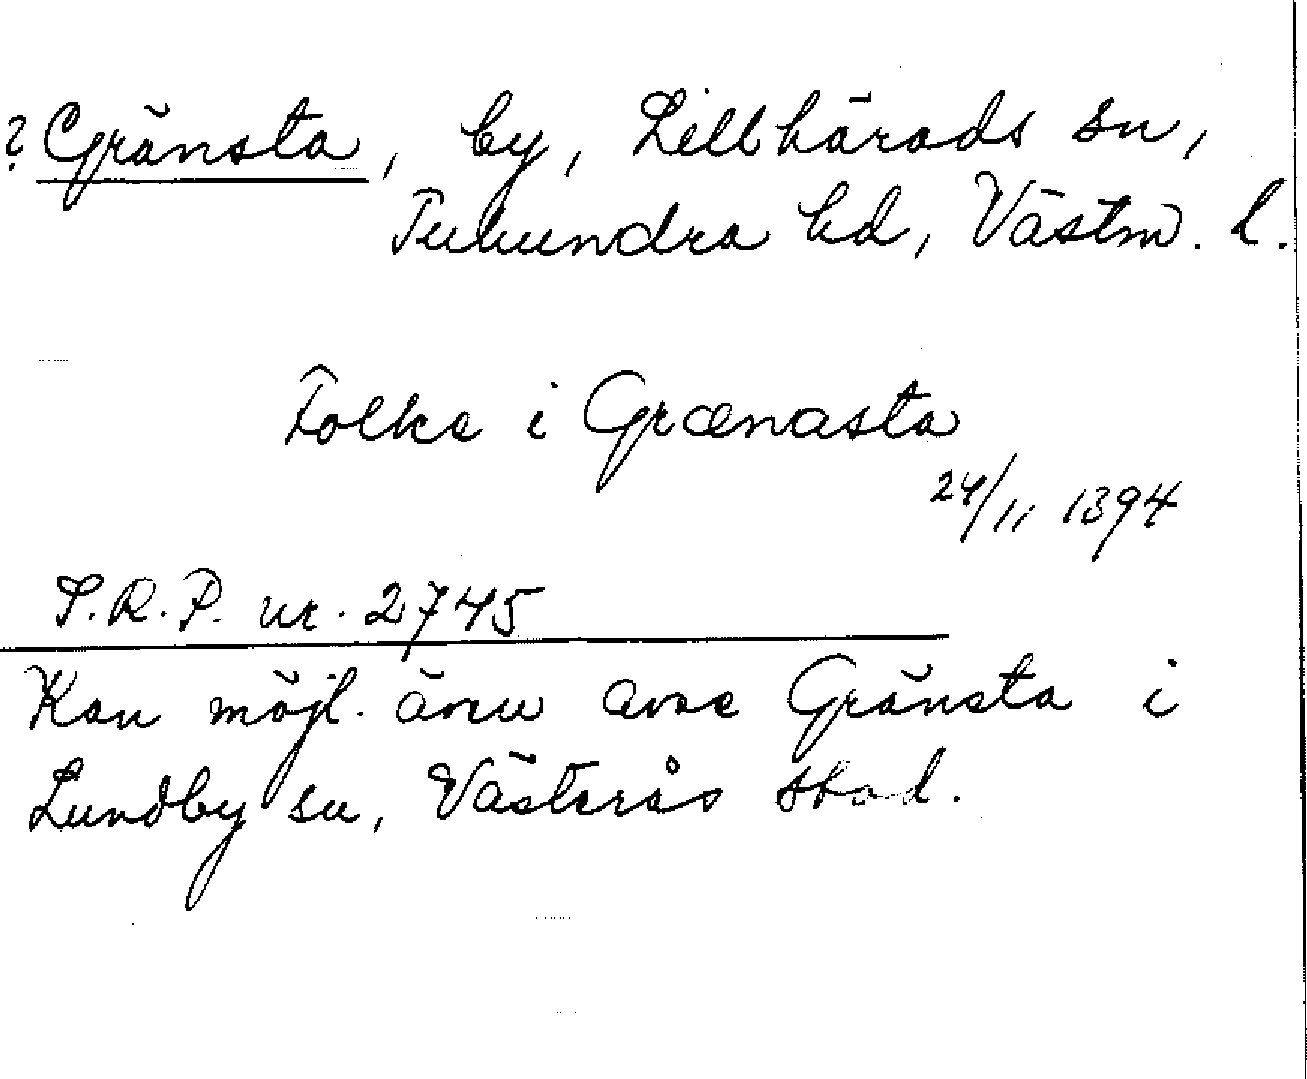 ? Gränsta, by, Lillhärads sn,
Tuhundra hd, Västm. l.
Folke i Grænasta
24/11 1394
S.R.P. nr. 2745
Kan möjl. även avse Gränsta i
Lundby sn, Västerås stad.